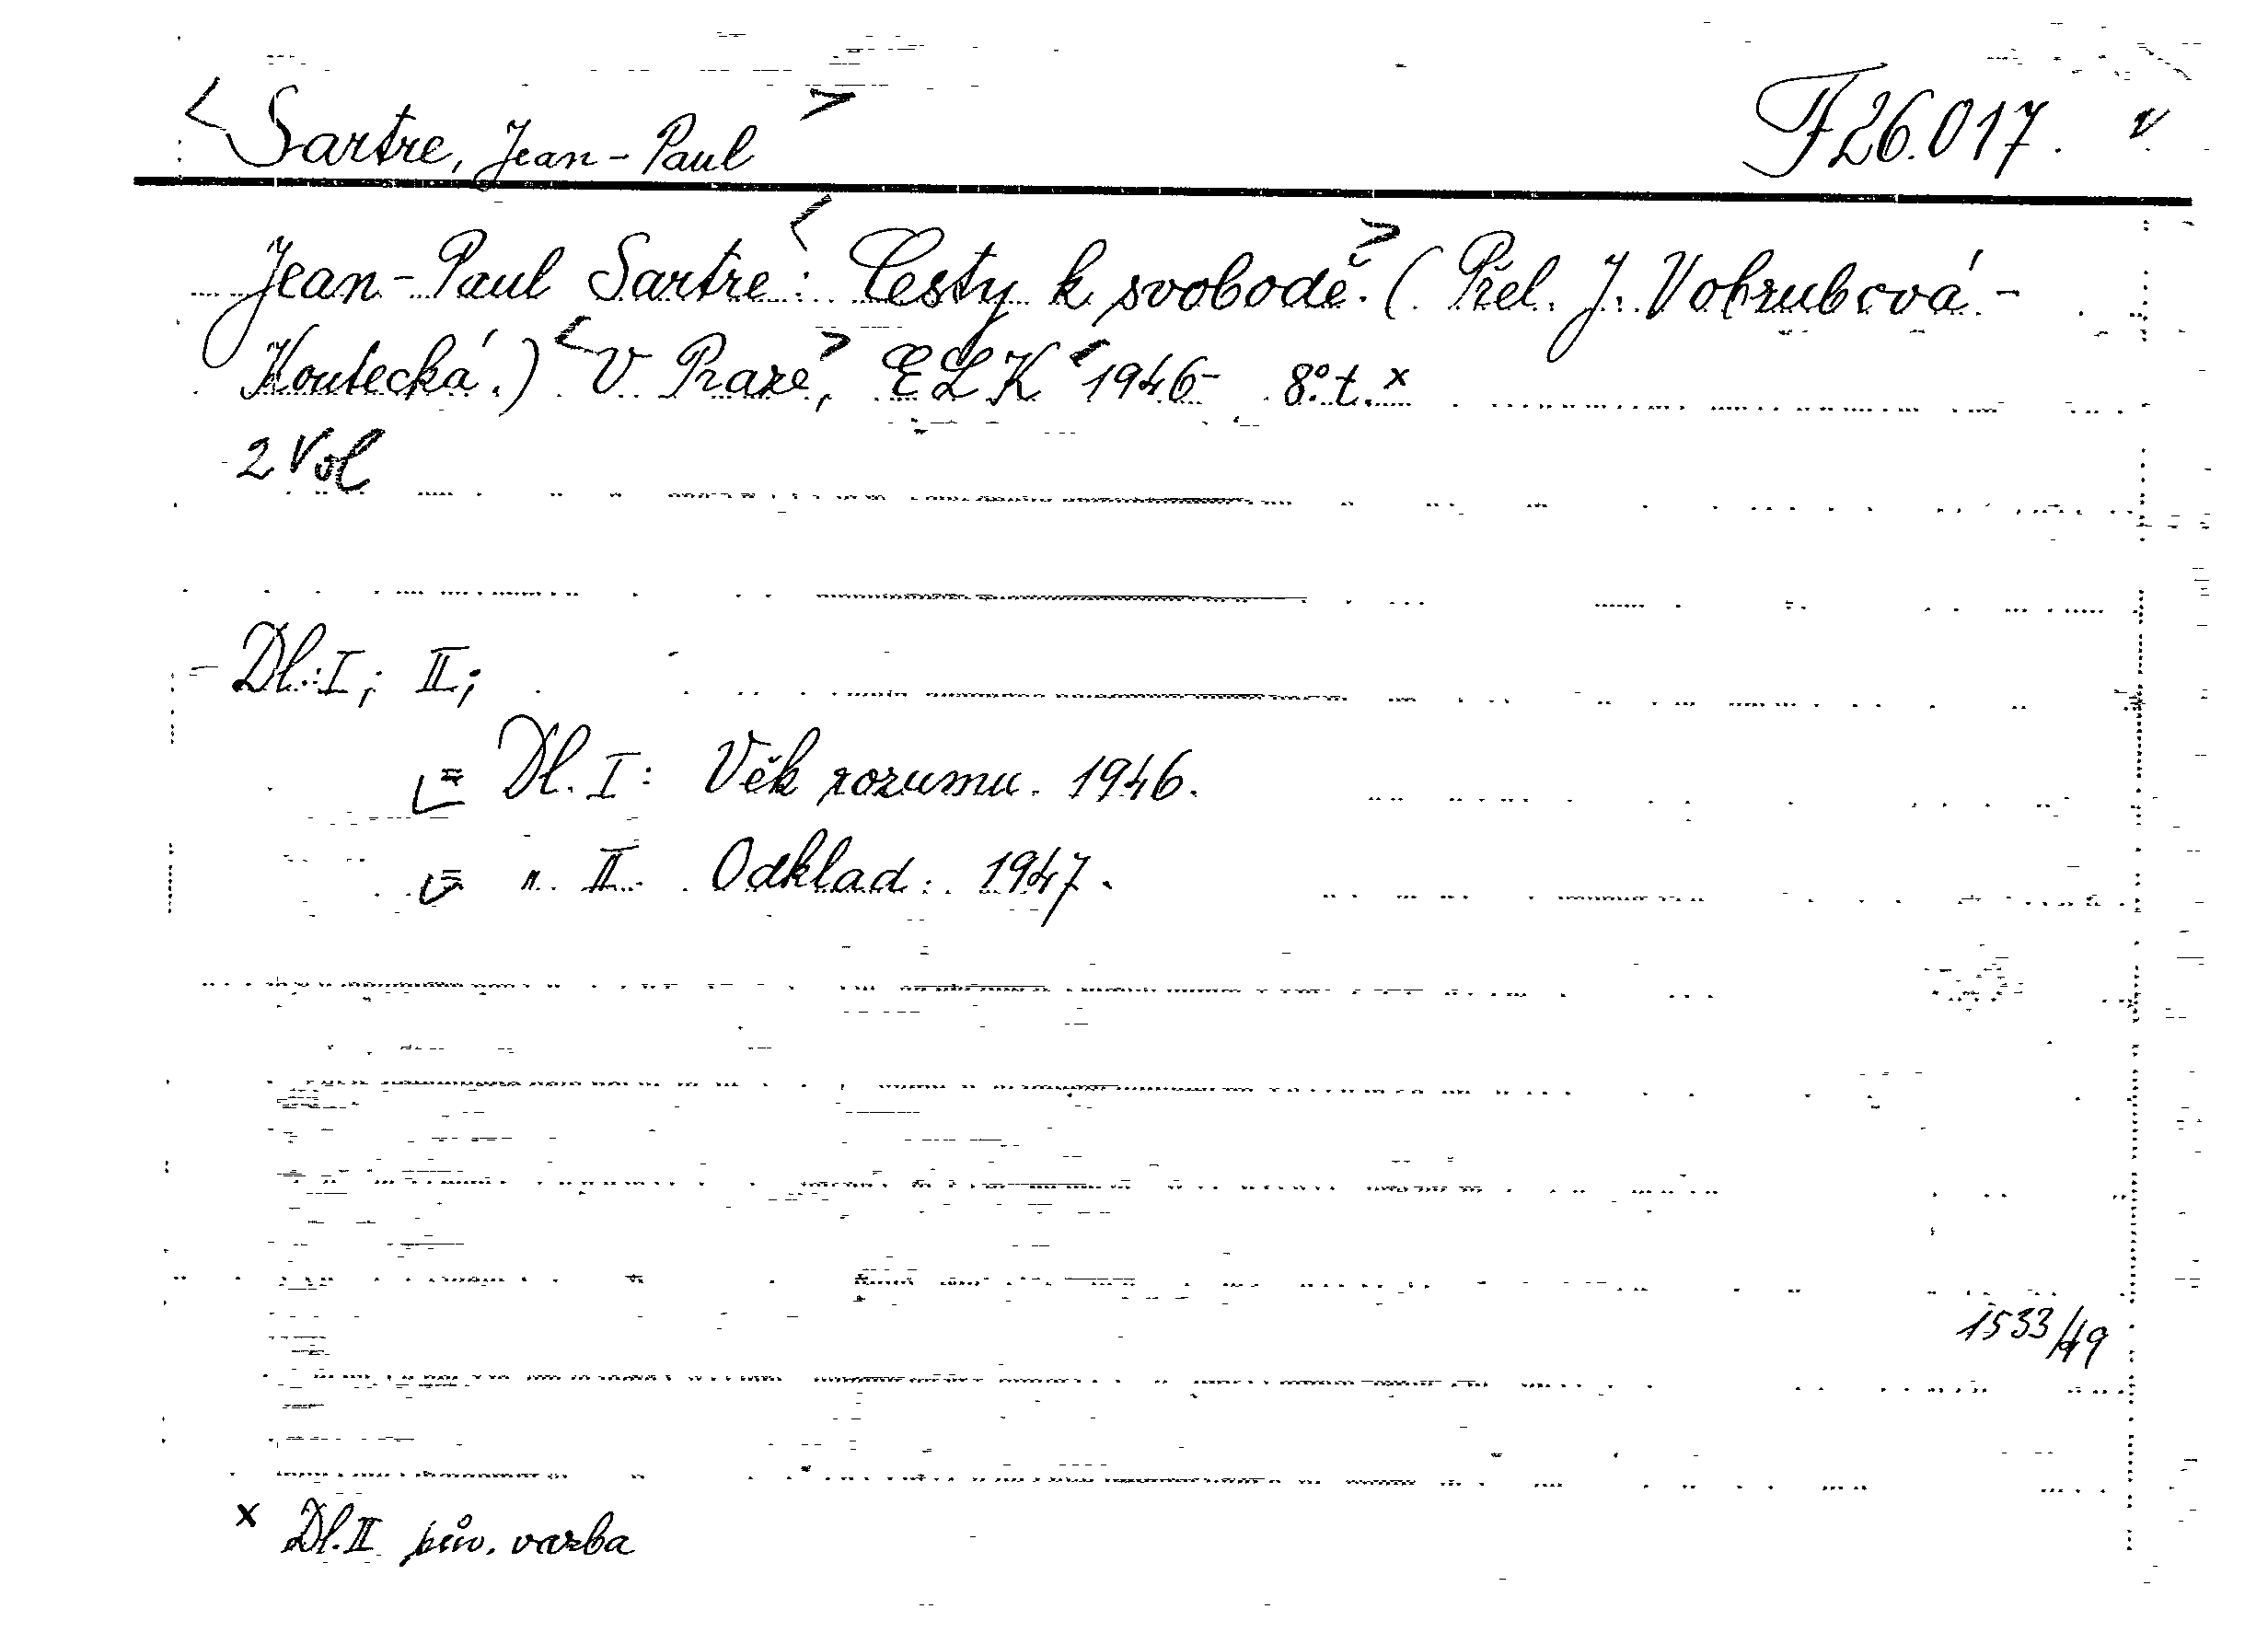 <Sartre, Jean-Paul> F 26.017. v
Jean-Paul Sartre: <Cesty k svobodě.> (Přel. J. Vobrubová-
Koutecká.) <V Praze>, ELK <1946- 8° t. x
2 Vol
- Dl. I; II;
= Dl. I: Věk rozumu. 1946.
= " II. Odklad. 1947.
1533/49
x Dl. II pův. vazba